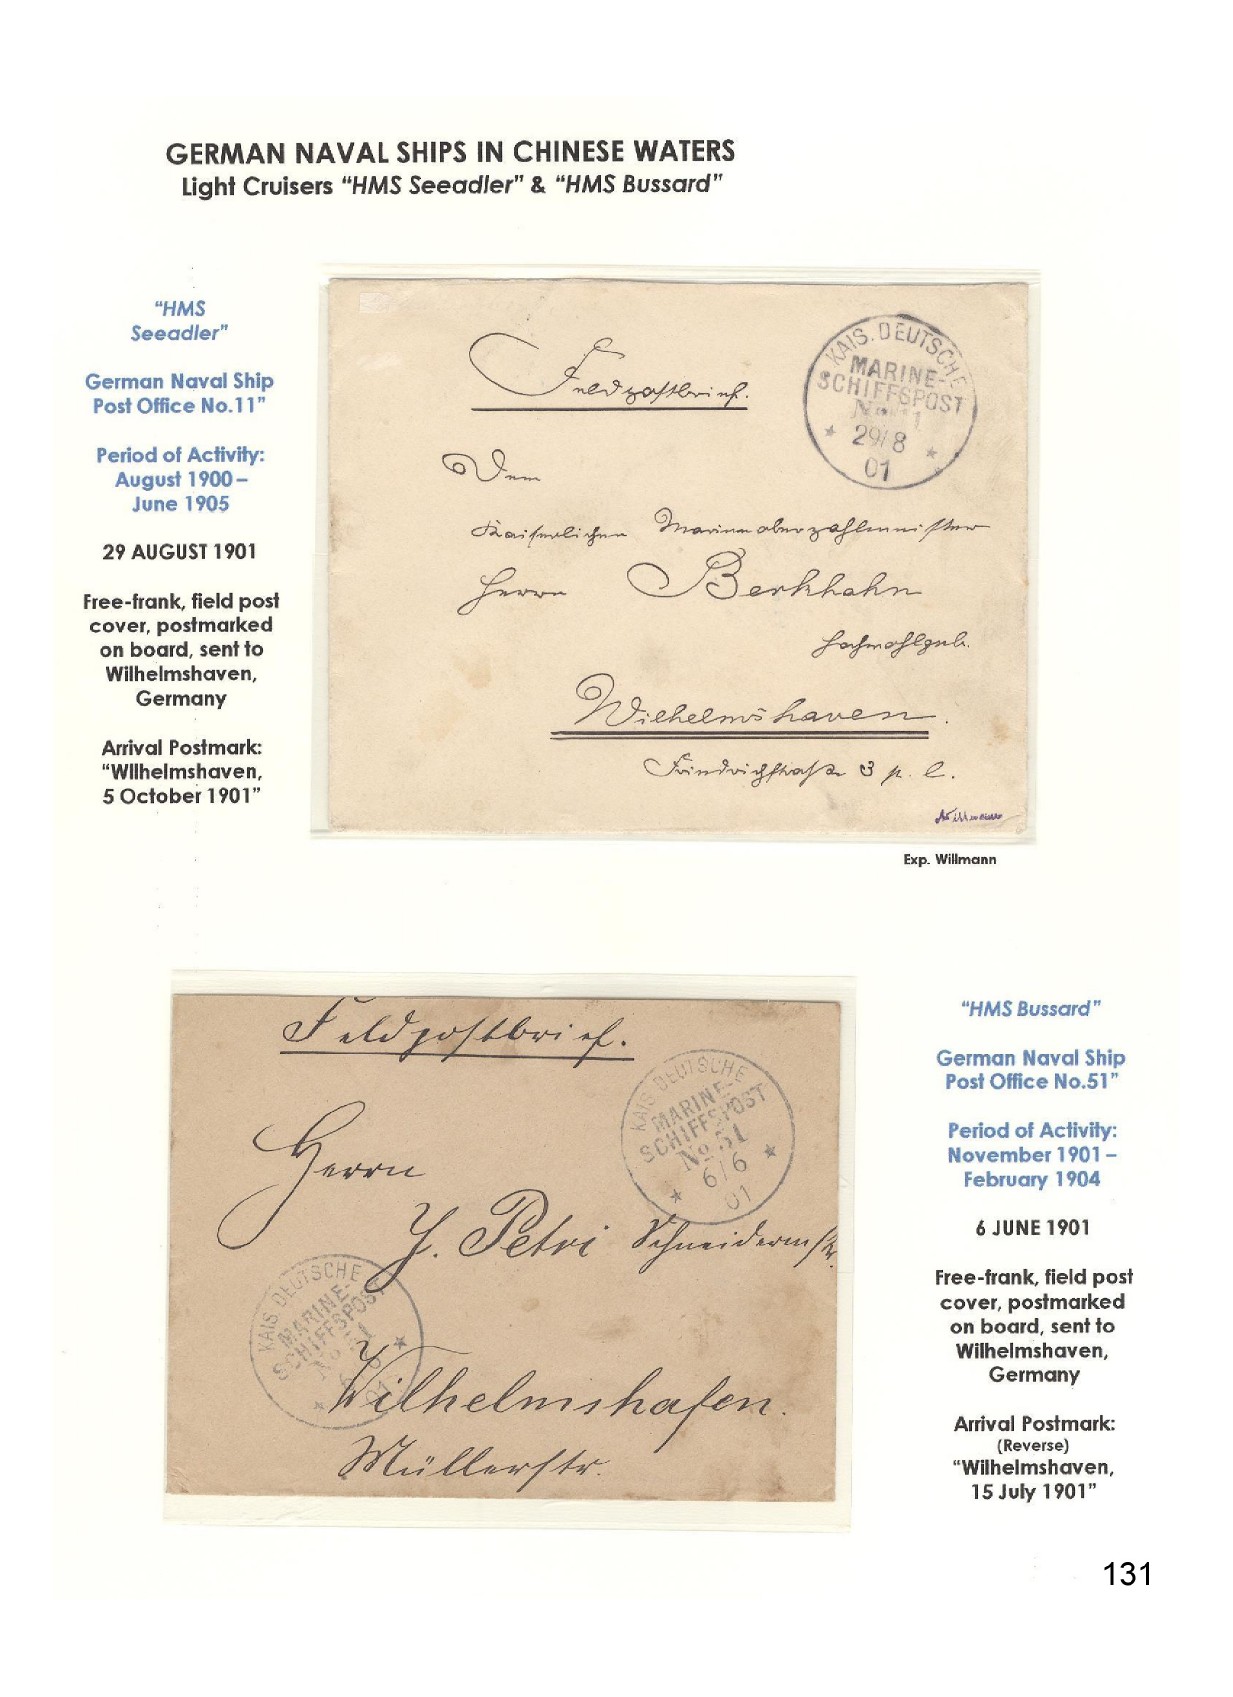 GERMAN NAVAL SHIPS IN CHINESE WATERS
Light Cruisers “HMS Seeadler” & “HMS Bussard”
“HMS
Seeadler”
German Naval Ship
Post Office No.11”
Period of Activity:
August 1900 –
June 1905
29 AUGUST 1901
Free-frank, field post
cover, postmarked
on board, sent to
Wilhelmshaven,
Germany
Arrival Postmark:
“Wilhelmshaven,
5 October 1901”
Feldpostbrief.
KAIS. DEUTSCHE
MARINE-
SCHIFFSPOST
No 11
29/8
01
Dem
Kaiserlichen Marineoberzahlmeister
Herrn Berkhahn
Hochwohlgeb.
Wilhelmshaven.
Friedrichstraße 3 p. l.
Willmann
Exp. Willmann
Feldpostbrief.
KAIS. DEUTSCHE
MARINE-
SCHIFFSPOST
No 51
6/6
01
Herrn
J. Petri Schneidermstr.
KAIS. DEUTSCHE
MARINE-
SCHIFFSPOST
No 51
6/6
01
Wilhelmshafen.
Müllerstr.
“HMS Bussard”
German Naval Ship
Post Office No.51”
Period of Activity:
November 1901 –
February 1904
6 JUNE 1901
Free-frank, field post
cover, postmarked
on board, sent to
Wilhelmshaven,
Germany
Arrival Postmark:
(Reverse)
“Wilhelmshaven,
15 July 1901”
131